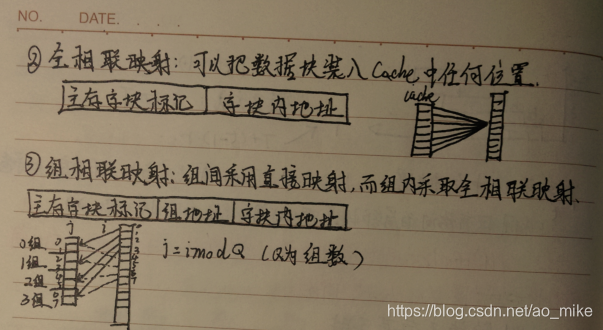 NO.
DATE.
②全相联映射:可以把数据块装入Cache中任何位置.
主存字块标记 字块内地址
cache
③组相联映射:组间采用直接映射,而组内采取全相联映射.
主存字块标记 组地址 字块内地址
j i
j=imodQ (Q为组数)
0组
1组
2组
3组
https://blog.csdn.net/ao_mike